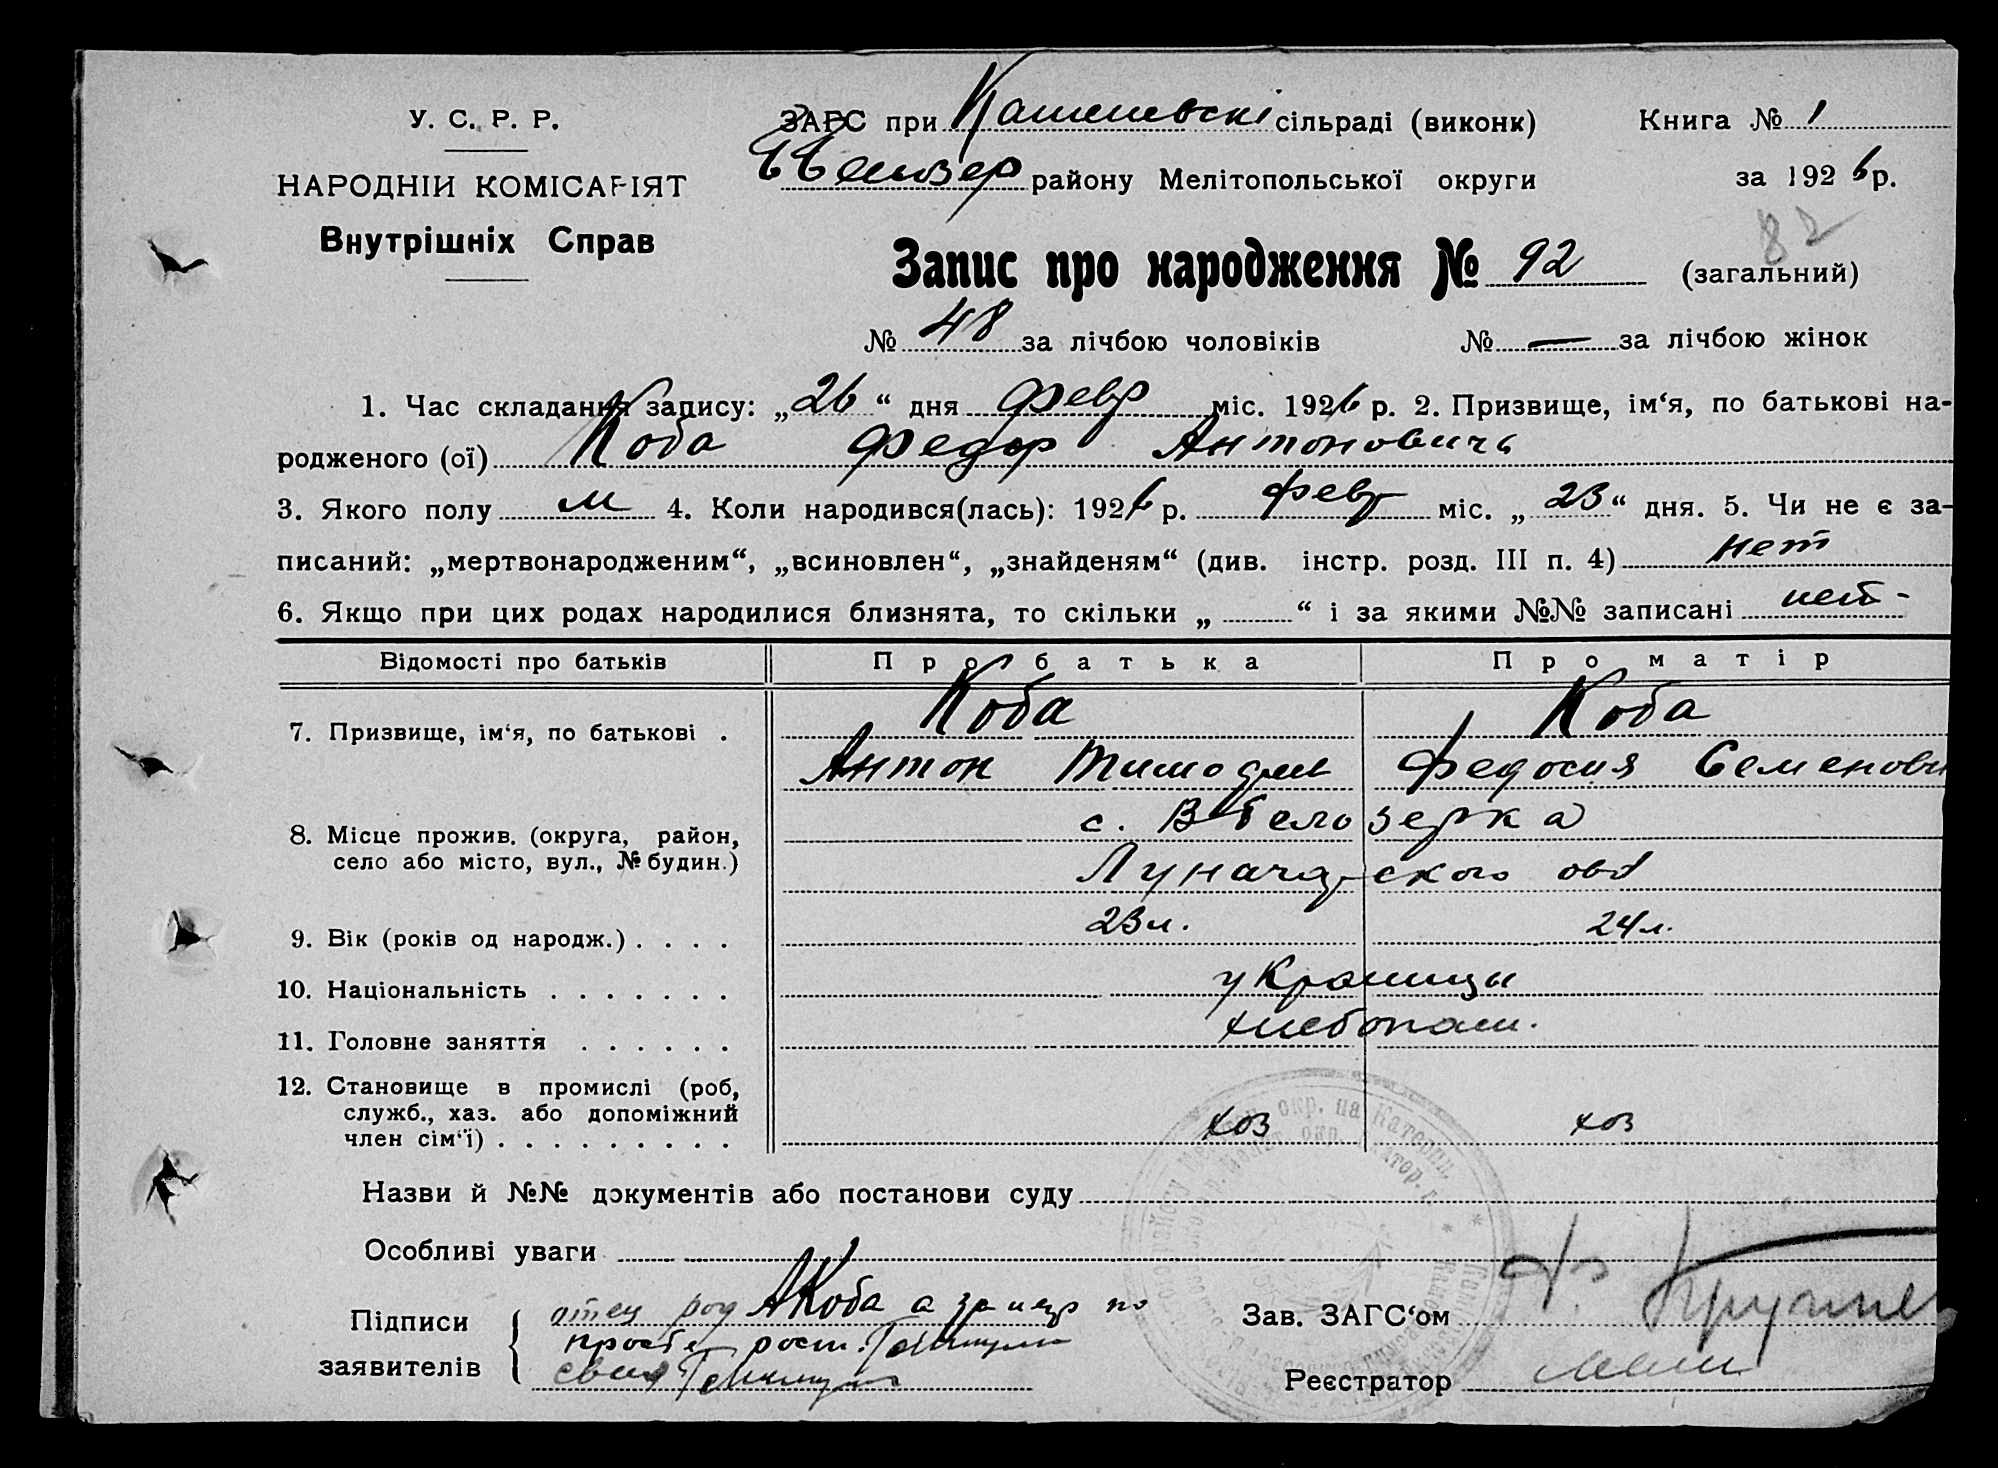 У. С. Р. Р.
НАРОДНІЙ КОМІСАРІЯТ
Внутрішніх Справ
ЗАГС при сільраді (виконк)
району Мелітопольської округи
Книга № 1
за 1926 р.
82
Запис про народження № 92 (загальний)
№ 48 за лічбою чоловіків № — за лічбою жінок
1. Час складання запису: „26“ дня февр міс. 1926 р. 2. Призвище, ім‘я, по батькові на-
родженого (ої) Коба Федор Антоновичь
3. Якого полу м 4. Коли народився(лась): 1926 р. февр міс. „23“ дня. 5. Чи не є за-
писаний: „мертвонародженим“, „всиновлен“, „знайденям“ (див. інстр. розд. III п. 4) нет
6. Якщо при цих родах народилися близнята, то скільки „ “ і за якими №№ записані нет -
Відомості про батьків Про батька Про матір
7. Призвище, ім‘я, по батькові . Коба Коба
Антон Федосия Семеновн
8. Місце прожив. (округа, район,
село або місто, вул., № будин.)
с. В Белозерка
Луначарского
9. Вік (років од народж.) . . . . 23 л. 24 л.
10. Національність . . . . . . . украинцы
11. Головне заняття . . . . . . хлебопаш.
12. Становище в промислі (роб,
служб., хаз. або допоміжний
член сім‘ї) . . . . . . . . . . хоз хоз
Назви й №№ документів або постанови суду
Особливі уваги
Підписи
заявителів
отец АКоба а за по
просьбе
Зав. ЗАГС‘ом
Реєстратор